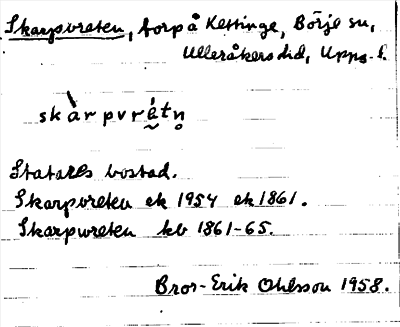 Skarpvreten, torp å Kettinge, Börje sn,
Ulleråkers hd, Upps. l.
skàrpvrétn̥
Statares bostad.
Skarpvreten ek 1954 ek 1861.
Skarpwreten kb 1861-65.
Bror-Erik Ohlsson 1958.